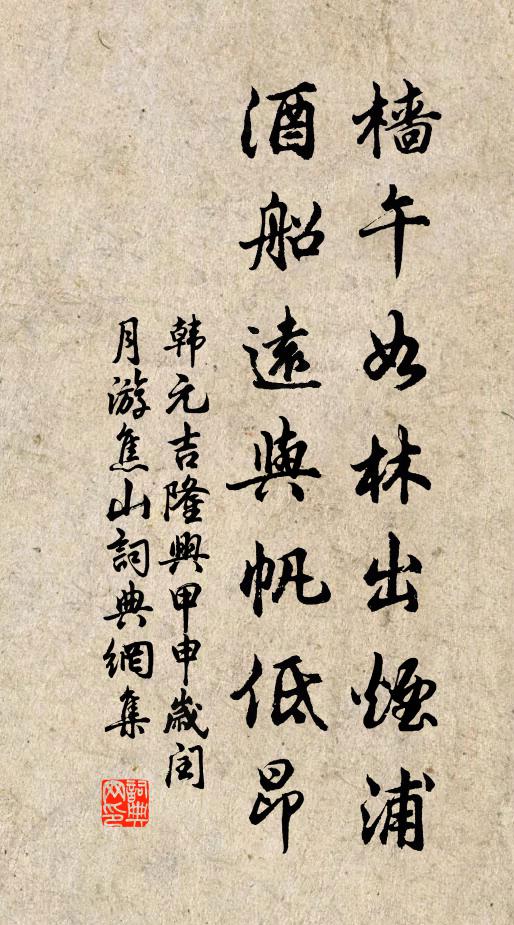 檣午如林出煙浦
酒船遠與帆低昂
韩元吉隆興甲申歲閏
月游焦山詞典網集
詞典网印